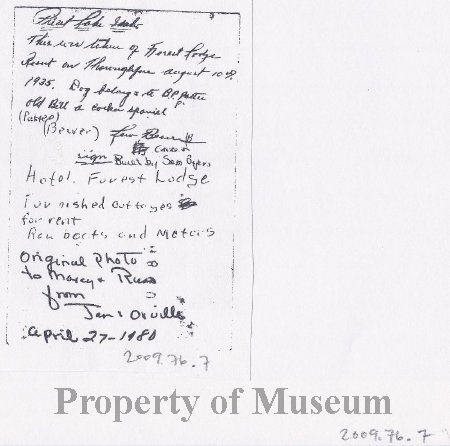 Priest Lake Idaho
This was taken of Forest Lodge
Resort on Thoroughfare august 10th
1935. Dog belongs to B.P. Potter
old Bill a cocker spaniel
(Beaver)
sign Built by Sam Byers
Hotel. Forest Lodge
Furnished cottages
for rent
Row boats and Motors
Original Photo
to Marcy + Russ
from
Jan & Orville
April 27-1980
2009.76.7
Property of Museum
2009.76.7